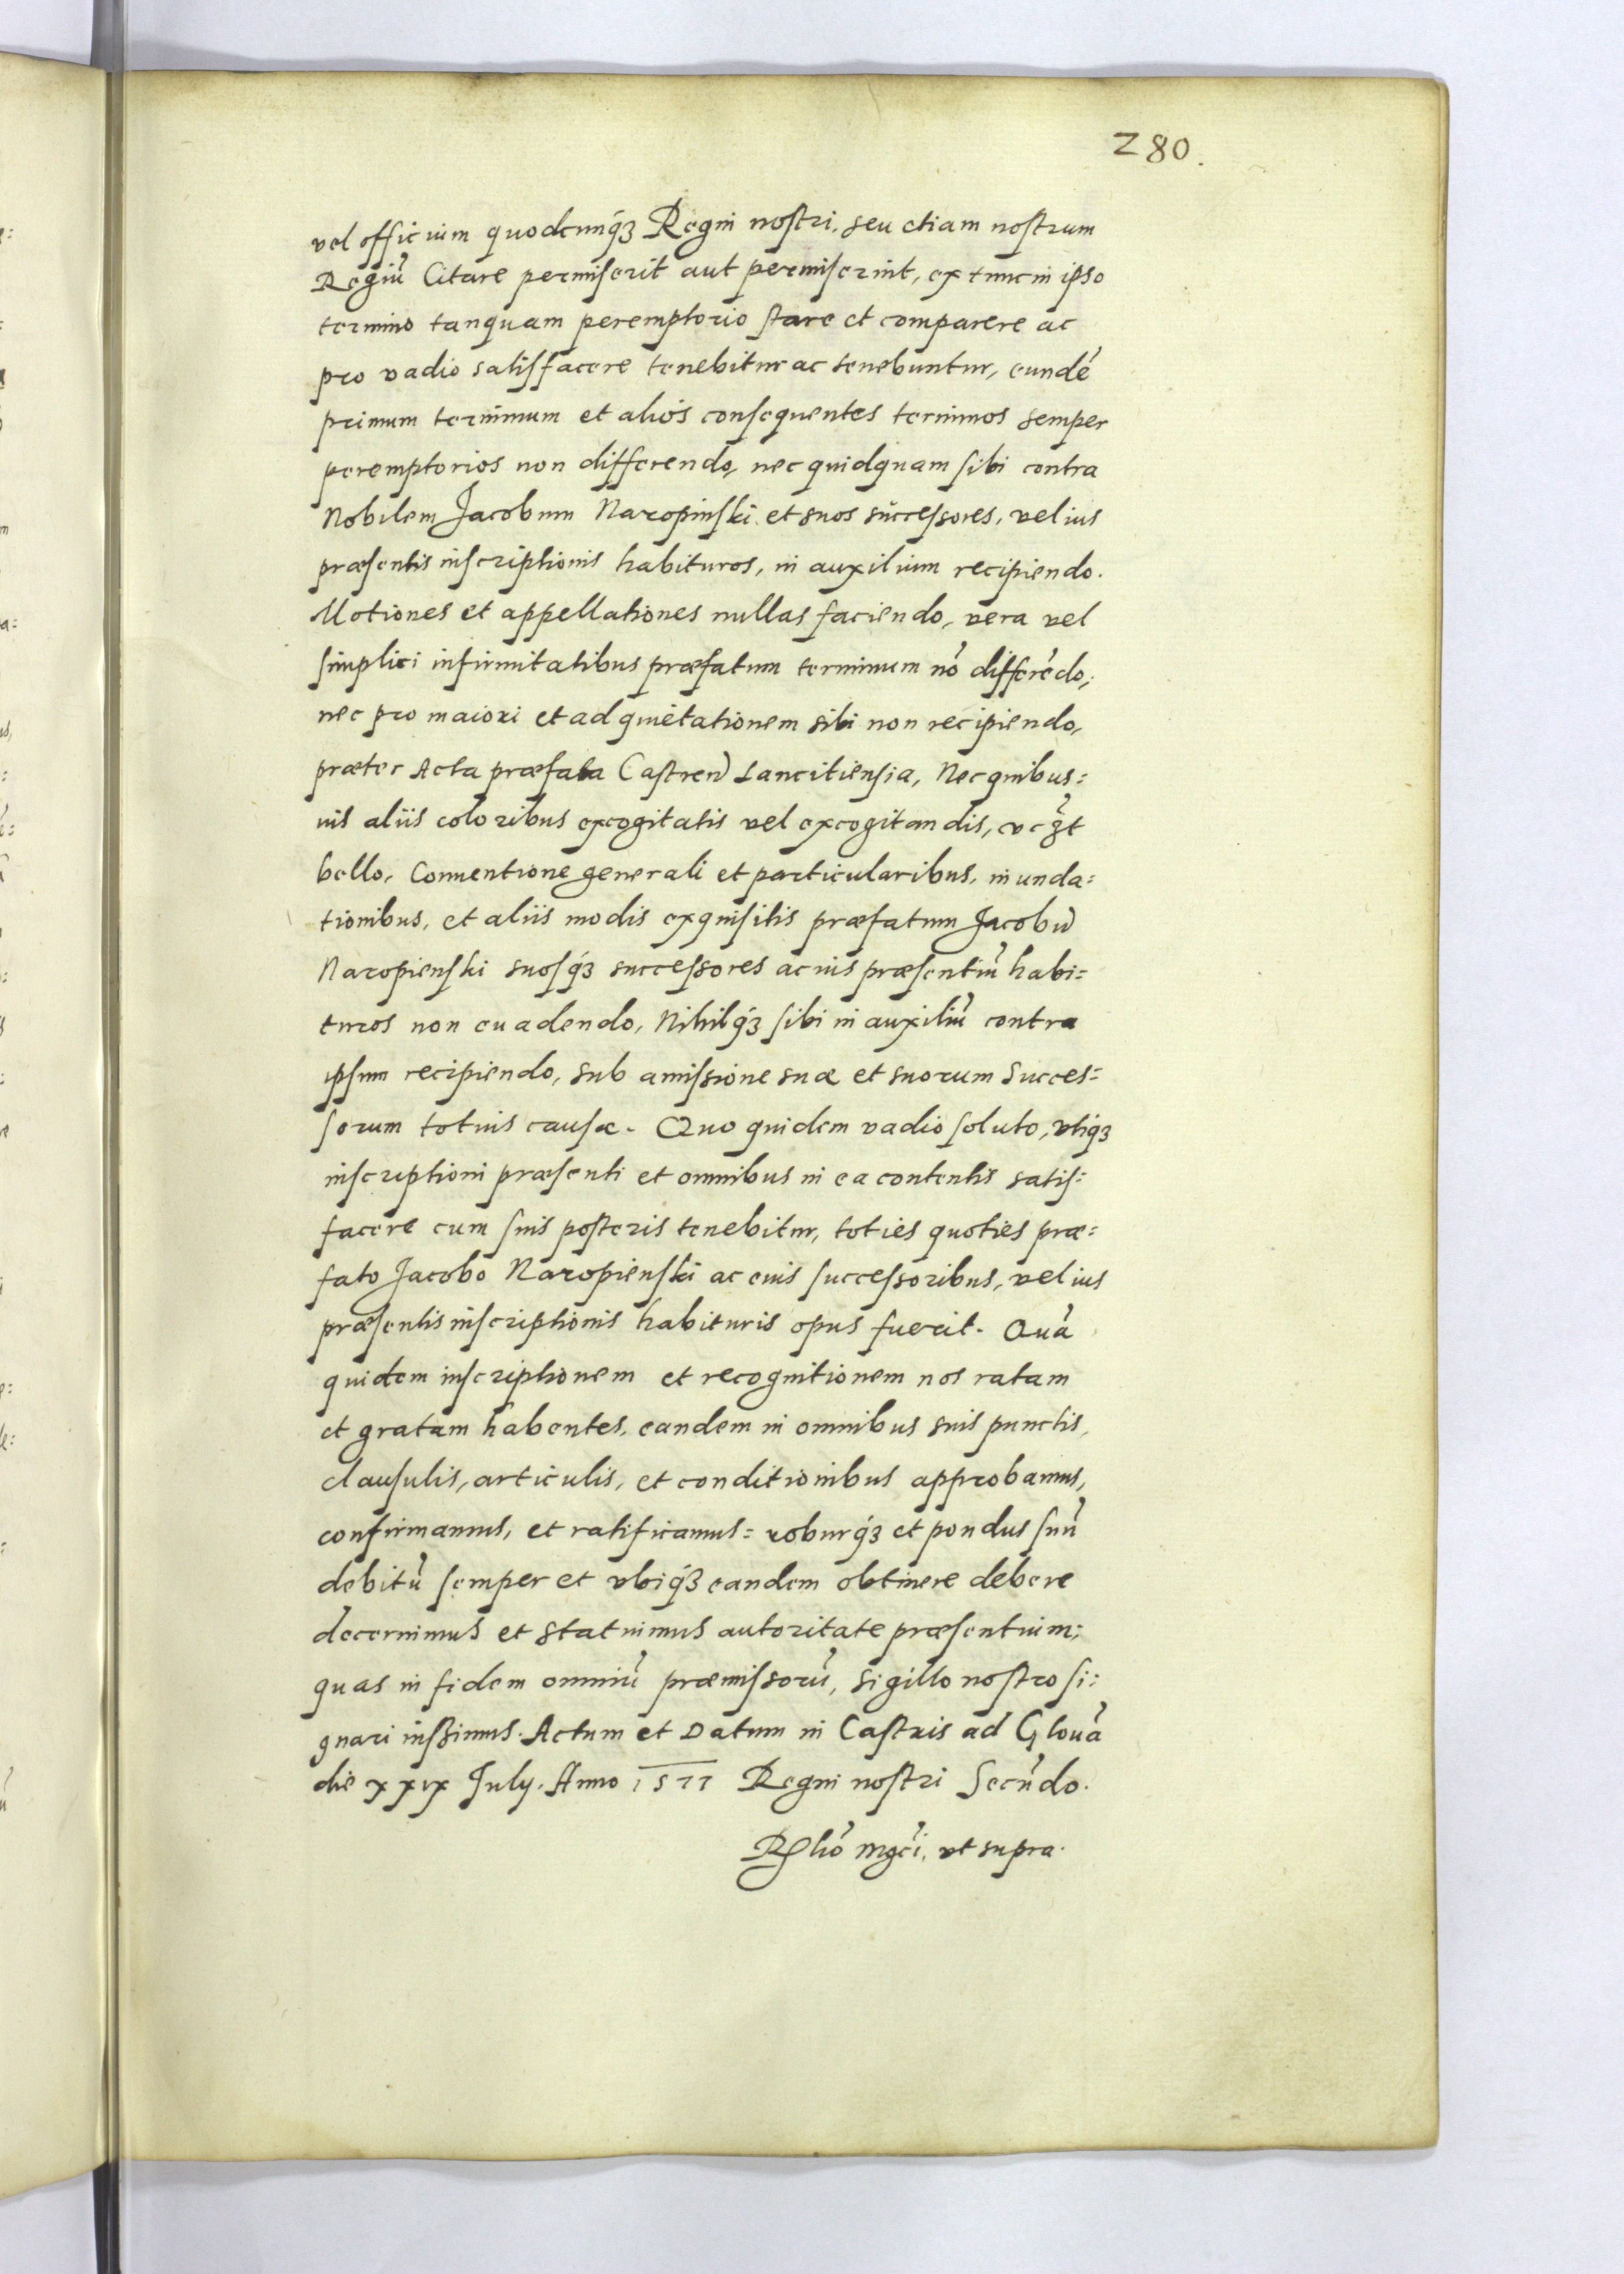 280.
vel officium quodcunq́ꝫ Regni nostri, seu etiam nostrum
Regiũ Citare permiserit aut permiserint, ex tunc in ipso
termino tanquam peremptorio stare et comparere ac
pro vadio satisfacere tenebitur ac tenebuntur, eundẽ
primum terminum et alios consequentes terminos semper
peremptorios non differendo, nec quidquam sibi contra
Nobilem Jacobum Naropinski et suos successores, vel ius
præsentis inscriptionis habituros, in auxilium recipiendo.
Motiones et appellationes nullas faciendo, vera vel
simplici infirmitatibus præfatum terminum nõ differẽdo,
nec pro maiori et ad quietationem sibi non recipiendo,
præter Acta præfata Castreñ Lancitiensia, Nec quibus=
uis aliis coloribus excogitatis vel excogitandis,
bello, Conuentione generali et particularibus, inunda=
tionibus, et aliis modis exquisitis præfatum Jacobũ
Naropienski suosq́ꝫ successores ac ius præsentiũ habi=
turos non euadendo, Nihilq́ꝫ sibi in auxiliũ contra
ipsum recipiendo, sub amissione suæ et suorum Succes=
sorum totius causæ. Quo quidem vadio soluto, vtiqꝫ
inscriptioni præsenti et omnibus in ea contentis satis=
facere cum suis posteris tenebitur, toties quoties præ=
fato Jacobo Naropienski ac euis successoribus, vel ius
præsentis inscriptionis habituris opus fuerit. Quã
quidem inscriptionem et recognitionem nos ratam
et gratam habentes, eandem in omnibus suis punctis,
clausulis, articulis, et conditionibus approbamus,
confirmamus, et ratificamus= roburq́ꝫ et pondus suũ
debitũ semper et vbiq́ꝫ eandem obtinere debere
decernimus et statuimus autoritate præsentium;
quas in fidem omniũ præmissorũ, sigillo nostro si=
gnari iussimus. Actum et Datum in Castris ad Glouã
die xxix July. Anno 1577 Regni nostri Secũdo.
Rlĩo mgcĩ, vt supra.